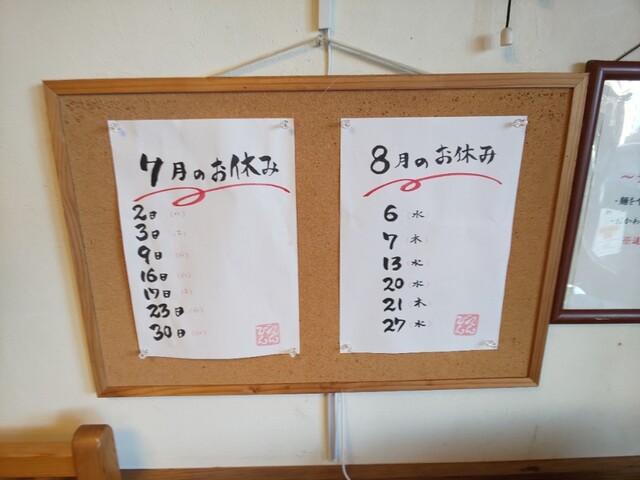 7月のお休み
2日
3日
9日
16日
17日
23日
30日
8月のお休み
6 水
7 木
13 水
20 水
21 木
27 水